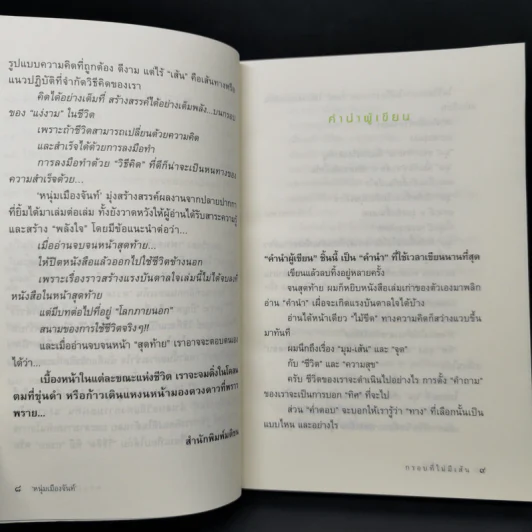 รูปแบบความคิดที่ถูกต้อง ดีงาม แต่ไร้ "เส้น" คือเส้นทางหรือ
แนวปฏิบัติที่จำกัดวิธีคิดของเรา
คิดได้อย่างเต็มที่ สร้างสรรค์ได้อย่างเต็มพลัง...บนกรอบ
ของ "แง่งาม" ในชีวิต
เพราะถ้าชีวิตสามารถเปลี่ยนด้วยความคิด
และสำเร็จได้ด้วยการลงมือทำ
การลงมือทำด้วย "วิธีคิด" ที่ดีก็น่าจะเป็นหนทางของ
ความสำเร็จด้วย...
'หนุ่มเมืองจันท์' มุ่งสร้างสรรค์ผลงานจากปลายปากกา
ที่ยิ้มได้มาเล่มต่อเล่ม ทั้งยังวาดหวังให้ผู้อ่านได้รับสาระความรู้
และสร้าง "พลังใจ" โดยมีข้อแนะนำต่อว่า...
เมื่ออ่านจบจนหน้าสุดท้าย...
ให้ปิดหนังสือแล้วออกไปใช้ชีวิตข้างนอก
เพราะเรื่องราวสร้างแรงบันดาลใจเล่มนี้ไม่ได้จบลงที่
หนังสือในหน้าสุดท้าย
แต่มีบทต่อไปที่อยู่ "โลกภายนอก"
สนามของการใช้ชีวิตจริงๆ!!
และเมื่ออ่านจบจนหน้า "สุดท้าย" เราอาจจะตอบตนเอง
ได้ว่า...
เบื้องหน้าในแต่ละขณะแห่งชีวิต เราจะจมดิ่งในโคลน
ตมที่ขุ่นดำ หรือก้าวเดินแหงนหน้ามองดวงดาวที่พราว
พราย...
สำนักพิมพ์มติชน
๘ 'หนุ่มเมืองจันท์'
คำนำผู้เขียน
"คำนำผู้เขียน" ชิ้นนี้ เป็น "คำนำ" ที่ใช้เวลาเขียนนานที่สุด
เขียนแล้วลบทิ้งอยู่หลายครั้ง
จนสุดท้าย ผมก็หยิบหนังสือเล่มเก่าของตัวเองมาพลิก
อ่าน "คำนำ" เผื่อจะเกิดแรงบันดาลใจได้บ้าง
อ่านได้หน้าเดียว "ไม้ขีด" ทางความคิดก็สว่างแวบขึ้น
มาทันที
ผมนึกถึงเรื่อง "มุม-เส้น" และ "จุด"
กับ "ชีวิต" และ "ความสุข"
ครับ ชีวิตของเราจะดำเนินไปอย่างไร การตั้ง "คำถาม"
ของเราจะเป็นการบอก "ทิศ" ที่จะไป
ส่วน "คำตอบ" จะบอกให้เรารู้ว่า "ทาง" ที่เลือกนั้นเป็น
แบบไหน และอย่างไร
กรอบที่ไม่มีเส้น ๙